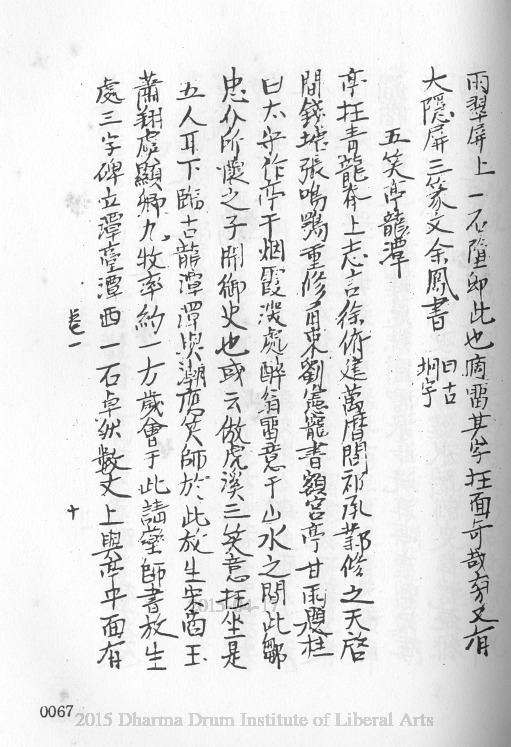 雨翠屏上一石墮卸此也摘雷其字在面奇哉旁又有
大隱屏三篆文余鳳書曰古
坰字
五笑亭龍潭
亭在青龍脊上志言徐術建萬曆間祁承㸁修之天啓
間錢塘張鳴鶚重修甬東劉憲寵書額宮亭甘雨題柱
曰太守作亭于烟霞深處醉翁留意于山水之間此鄒
忠介所懷之子開御史也或云倣虎溪三笑意在坐是
五人耳下臨古龍潭潭與潮應笑師於此放生宋酉玉
蕭翔虞顯歸九牧率約一方歲會于此請藥師書放生
處三字碑立潭臺潭西一石卓然數丈上與亭平面有
卷一
十
0067
2015-04-17
2015 Dharma Drum Institute of Liberal Arts